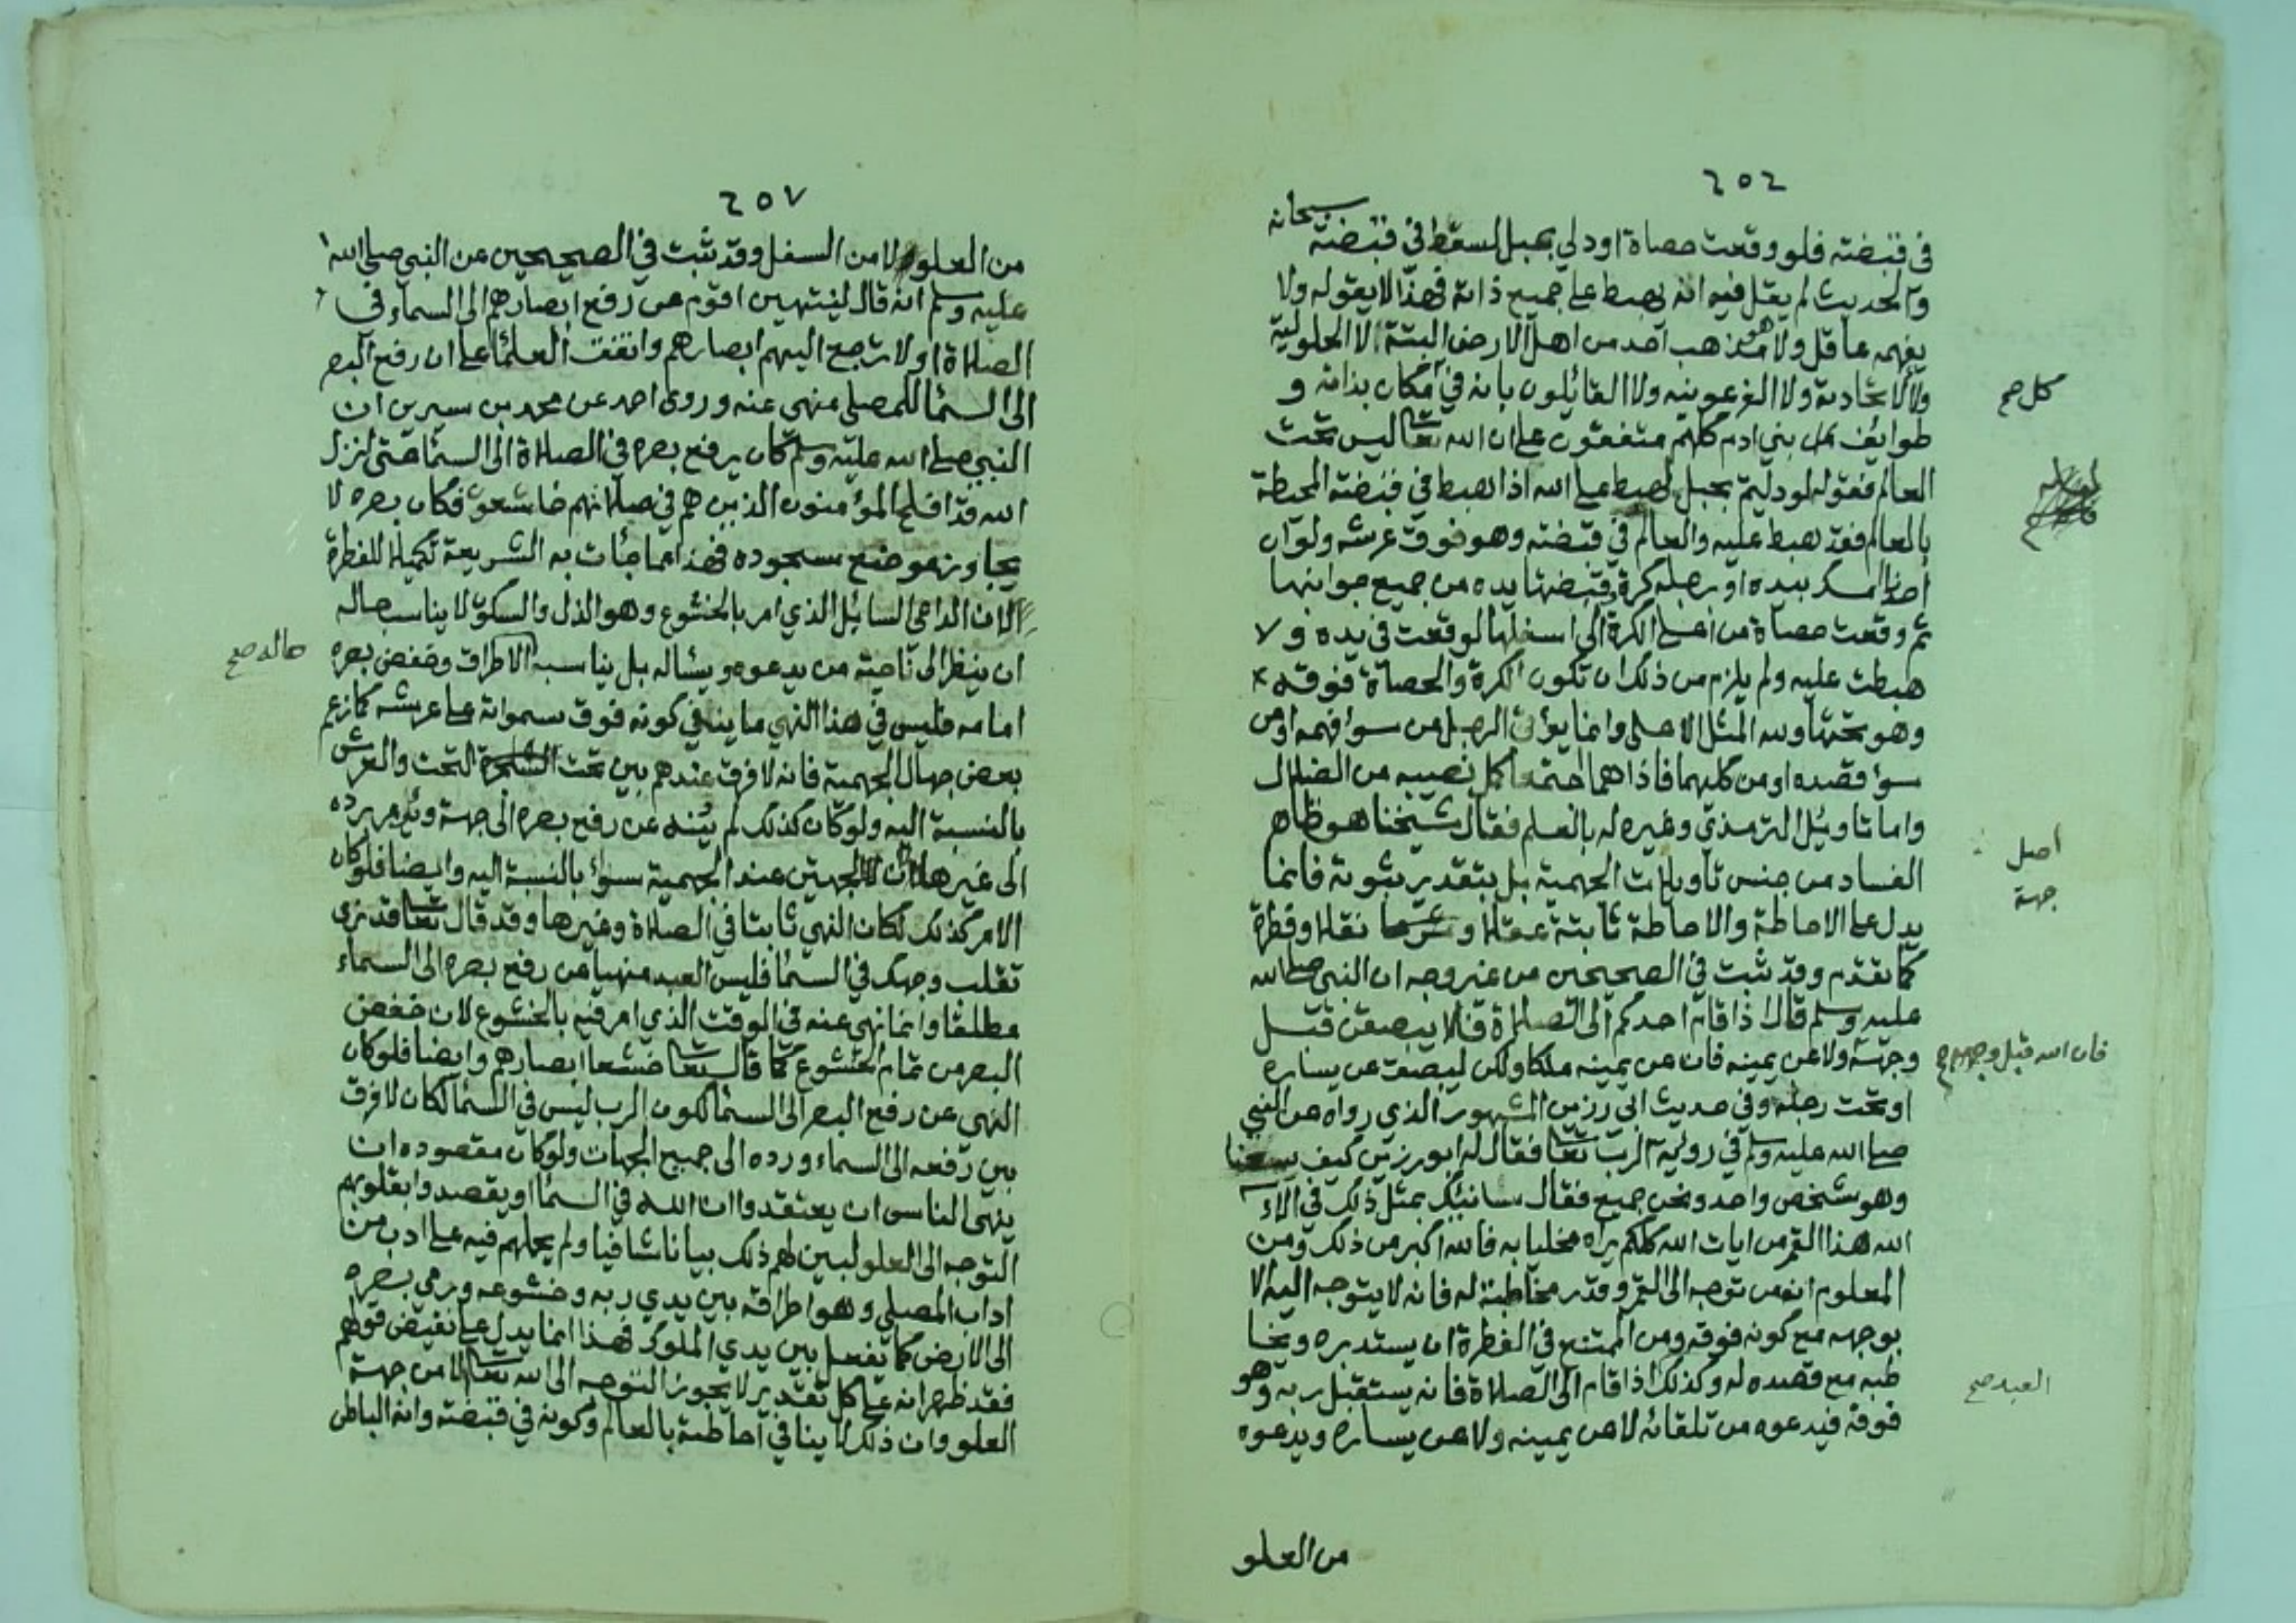 ٢٥٦
في قبضته فلو وقعت حصاة او دلي بحبل لسقط في قبضته سبحانه
والحديث لم يقل فيه انه يهبط على جميع ذاته فهذا لا يقوله ولا
يفهمه عاقل ولا هو مذهب احد من اهل الارض البتة لا الحلولية
ولا الاتحادية ولا الفرعونيه ولا القائلون بانه في مكان بذاته و
كل صح
طوايف بني ادم كلهم متفقون على ان الله تعالى ليس تحت
العالم فقوله لو دليتم بحبل لهبط على الله اذا هبط في قبضته المحيطة
بالعالم فقد هبط عليه والعالم في قبضته وهو فوق عرشه ولو ان
احدنا امسك بيده او برجله كرة قبضتها يده من جميع جوانبها
ثم وقعت حصاة من اعلى الكرة الى اسفلها لوقعت في يده ولا
هبطت عليه ولم يلزم من ذلك ان تكون الكرة والحصاة فوقه
وهو تحتها ولله المثل الاعلى وانما يؤتى الرجل من سوا فهمه او من
سوء قصده او من كليهما فاذا هما اجتمعا كمل نصيبه من الضلال
واما تاويل الترمذي وغيره له بالعلم فقال شيخنا هو ظاهر
اصل
الفساد من جنس تاويلات الجهمية بل بتقدير ثبوته فانما
جهة
يدل على الاحاطة والاحاطة ثابتة عقلا وشرعا نقلا وفطرة
كما تقدم وقد ثبت في الصحيحين من غير وجه ان النبي صلى الله
عليه وسلم قال اذا قام احدكم الى الصلاة فلا يبصقن قبل
وجهه ولا عن يمينه فان عن يمينه ملكا ولكن ليبصق عن يساره
فان الله قبل وجهه صح
او تحت رجله وفي حديث ابي رزين المشهور الذي رواه عن النبي
صلى الله عليه وسلم في روية الرب تعالى فقال له ابو رزين كيف يسعنا
وهو شخص واحد ونحن جميع فقال سانبئك بمثل ذلك في الاء
الله هذا القمر من ايات الله كلكم يراه مخليا به فالله اكبر من ذلك ومن
المعلوم انه من توجه الى القمر وقدر مخاطبته له فانه لا يتوجه اليه الا
بوجهه مع كونه فوقه ومن الممتنع في الفطرة ان يستدبره ويخا
طبه مع قصده له وكذلك اذا قام الى الصلاة فانه يستقبل ربه وهو
العبد صح
فوقه فيدعوه من تلقائه لا من يمينه ولا من يساره ويدعوه
من العلو
٢٥٧
من العلو لا من السفل وقد ثبت في الصحيحين عن النبي صلى الله
عليه وسلم انه قال لينتهين اقوام عن رفع ابصارهم الى السماء في
الصلاة او لا ترجع اليهم ابصارهم واتفقت العلماء على ان رفع البصر
الى السماء للمصلي منهي عنه وروى احمد عن محمد بن سيرين ان
النبي صلى الله عليه وسلم كان يرفع بصره في الصلاة الى السماء حتى انزل
الله قد افلح المؤمنون الذين هم في صلاتهم خاشعون فكان بصره لا
يجاوز موضع سجوده فهذا مما جاءت به الشريعة تكميلا للفطرة
لان الداعي السايل الذي امر بالخشوع وهو الذل والسكون لا يناسب حاله
ان ينظر الى ناحية من يدعوه ويساله بل يناسبه الاطراق وغض بصره
حاله صح
امامه فليس في هذا النهي ما ينفي كونه فوق سمواته على عرشه كما زعم
بعض جهال الجهمية فانه لا فرق عندهم بين تحت التحت والعرش
بالنسبة اليه ولو كان كذلك لم ينه عن رفع بصره الى جهة ويؤمر برده
الى غيرها لان الجهتين عند الجهمية سواء بالنسبة اليه وايضا فلو كان
الامر كذلك لكان النهي ثابتا في الصلاة وغيرها وقد قال تعالى قد نرى
تقلب وجهك في السماء فليس العبد منهيا من رفع بصره الى السماء
مطلقا وانما نهي عنه في الوقت الذي امر فيه بالخشوع لان خفض
البصر من تمام الخشوع كما قال تعالى خشعا ابصارهم وايضا فلو كان
النهي عن رفع البصر الى السماء لكون الرب ليس في السماء لكان لا فرق
بين رفعه الى السماء ورده الى جميع الجهات ولو كان مقصوده ان
ينهى الناس ان يعتقدوا ان الله في السماء او يقصدوا بقلوبهم
التوجه الى العلو لبين لهم ذلك بيانا شافيا ولم يحملهم فيه على ادب من
اداب المصلي وهو اطراقه بين يدي ربه وخشوعه ورمي بصره
الى الارض كما يفعل بين يدي الملوك فهذا انما يدل على نقيض قولهم
فقد ظهر انه على كل تقدير لا يجوز التوجه الى الله تعالى الا من جهة
العلو وان ذلك لا ينافي احاطته بالعالم وكونه في قبضته وانه الباطن